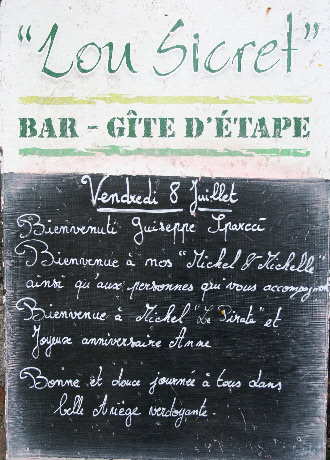 "Lou Sicret"
BAR - GÎTE D'ÉTAPE
Vendredi 8 Juillet
Bienvenuti Guiseppe Sparcci
Bienvenue à nos "Michel & Michelle"
ainsi qu'aux personnes qui vous accompagnent
Bienvenue à Michel "Le Pirate" et
Joyeux anniversaire Anne
Bonne et douce journée à tous dans
belle Ariège verdoyante.